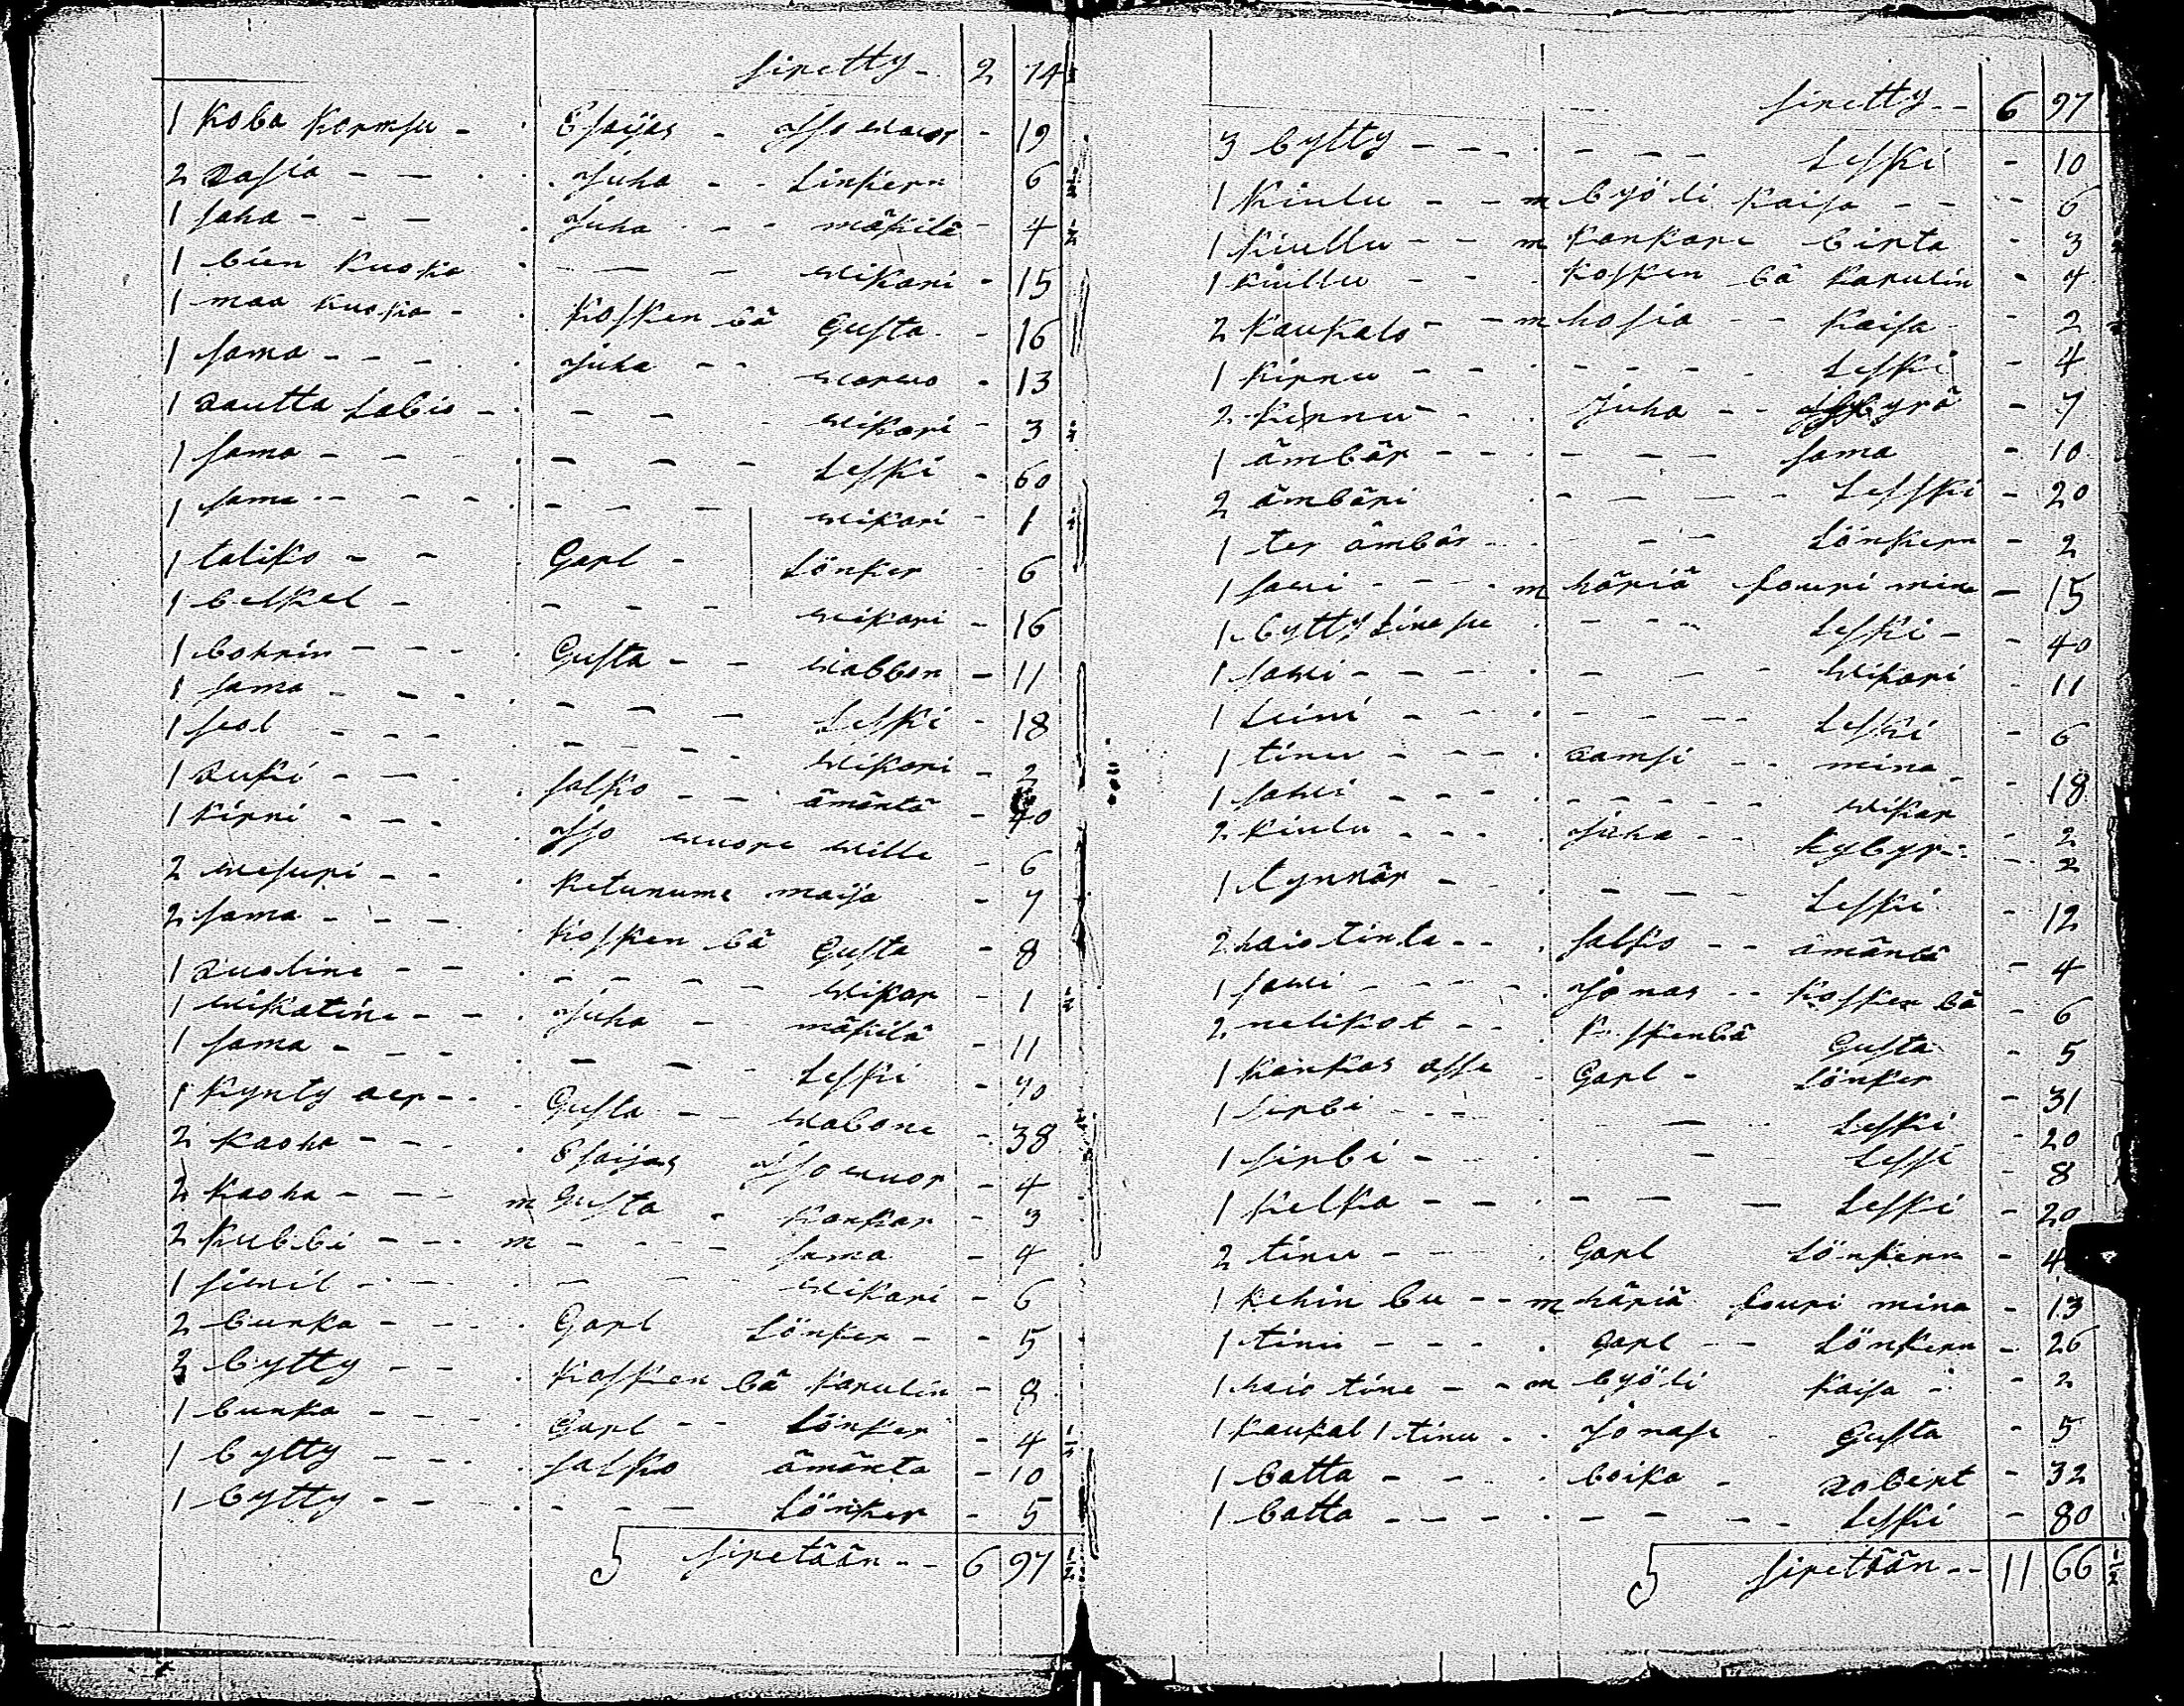 siretty - 2 74 ½
1 Koba Kormsu - Esaijas - Jso wuor - 19
2 Rasia - - Juha - - Linkern 6 ½
1 saha - - - Juha - - mäkilä - 4 ½
1 bien Kuoka - - - wikari - 15
1 maa kuoka - Kosken bä Gusta - 16
1 sama - - - Juha - - warwo - 13
1 Rautta Labio - - - wikari - 3 ½
1 sama - - - - - - Leski - 60
1 sama - - - - - - wikari - 1 ½
1 taliko - - Garl - Lönker - 6
1 belkel - - - - wikari - 16
1 bohrin - - - Gusta - - wabbon - 11
1 sama - - - - - - Leski - 18
1 seol - - - - - - wikari - 2
1 Ruki - - salko - - ämäntä - 40
1 Kirni - - - Jso wuore wille - 6
2 wesuri - - Ketunume maija - 7
2 sama - - - Kosken bä Gusta - 8
1 Ruoline - - - - - wikar - 1 ½
1 wikatine - - Juha - mäkilä - 11
1 sama - - - - - - Leski - 70
1 Kynty aer - - Gusta - - wabone - 38
2 Kaoha - - - Esaijas Jso wuor - 4
2 Kaoha - - - m Gusta - Kankar - 3
2 Kubbi - - - m - - - sama - 4
1 siwil - - - - - wikari - 6
2 bunka - - - Garl Lönker - - 5
3 bytty - - Kosken bä Karulin - 8
1 bunka - - - Garl - - Lönker - 4 ½
1 bytty - - - salko ämänta - 10
1 bytty - - - - - Lönker - 5
S siretään - - 6 97 ½
siretty - - 6 97
3 bytty - - - - - - Leski - 10
1 Kiulu - - m byö li Kaisa - - - 6
1 Kiullu - - m Kankari birta - 3
1 Kiullu - - Kosken bä Karulin - 4
2 Kaukalo - - m hosia - - Kaisa - 2
1 Kirnu - - - - - - Leski - 4
2 Kirnu - - Juha - - byrä - 7
1 ämbär - - - - - - sama - 10
2 ämbäri - - - - Leski - 20
1 ter ämbär - - - - Lönkern - 2
1 sawi - - - m häriä louri mina - 15
1 bytty Lina su - - - Leski - - 40
1 sawi - - - - - - wikari - 11
1 Luini - - - - - - Leski - 6
1 tinu - - - Ramsi - - mina - 18
1 sawi - - - - - - wikar - 2
2 Kiulu - - - Juha - - Kybyr - - 2
1 tynnär - - - - - Leski - 12
2 haio tinta - - salko - - ämäntä - 4
1 sawi - - - - Jonas - - Kosken bä - 6
2 nelikot - - Koskenbä Gusta - 5
1 Kankas assa - Garl - Lönker - 31
1 sirbi - - - - - Leski - 20
1 sirbi - - - Lessi - 8
1 Kelka - - - - - Leski - 20
2 tinu - - Garl Lönkern - 4
1 Kehin bu - - m häriä louri mina - 13
1 tinu - - - Garl - - Lönkern - 26
1 haio tine - - m byö li Kaisa - - 2
1 Kaukal 1 tinu - - Jonasi - Gusta - 5
1 batta - - - boika - Robert - 32
1 batta - - - - - - Leski - 80
S siretään - - 11 66 ½